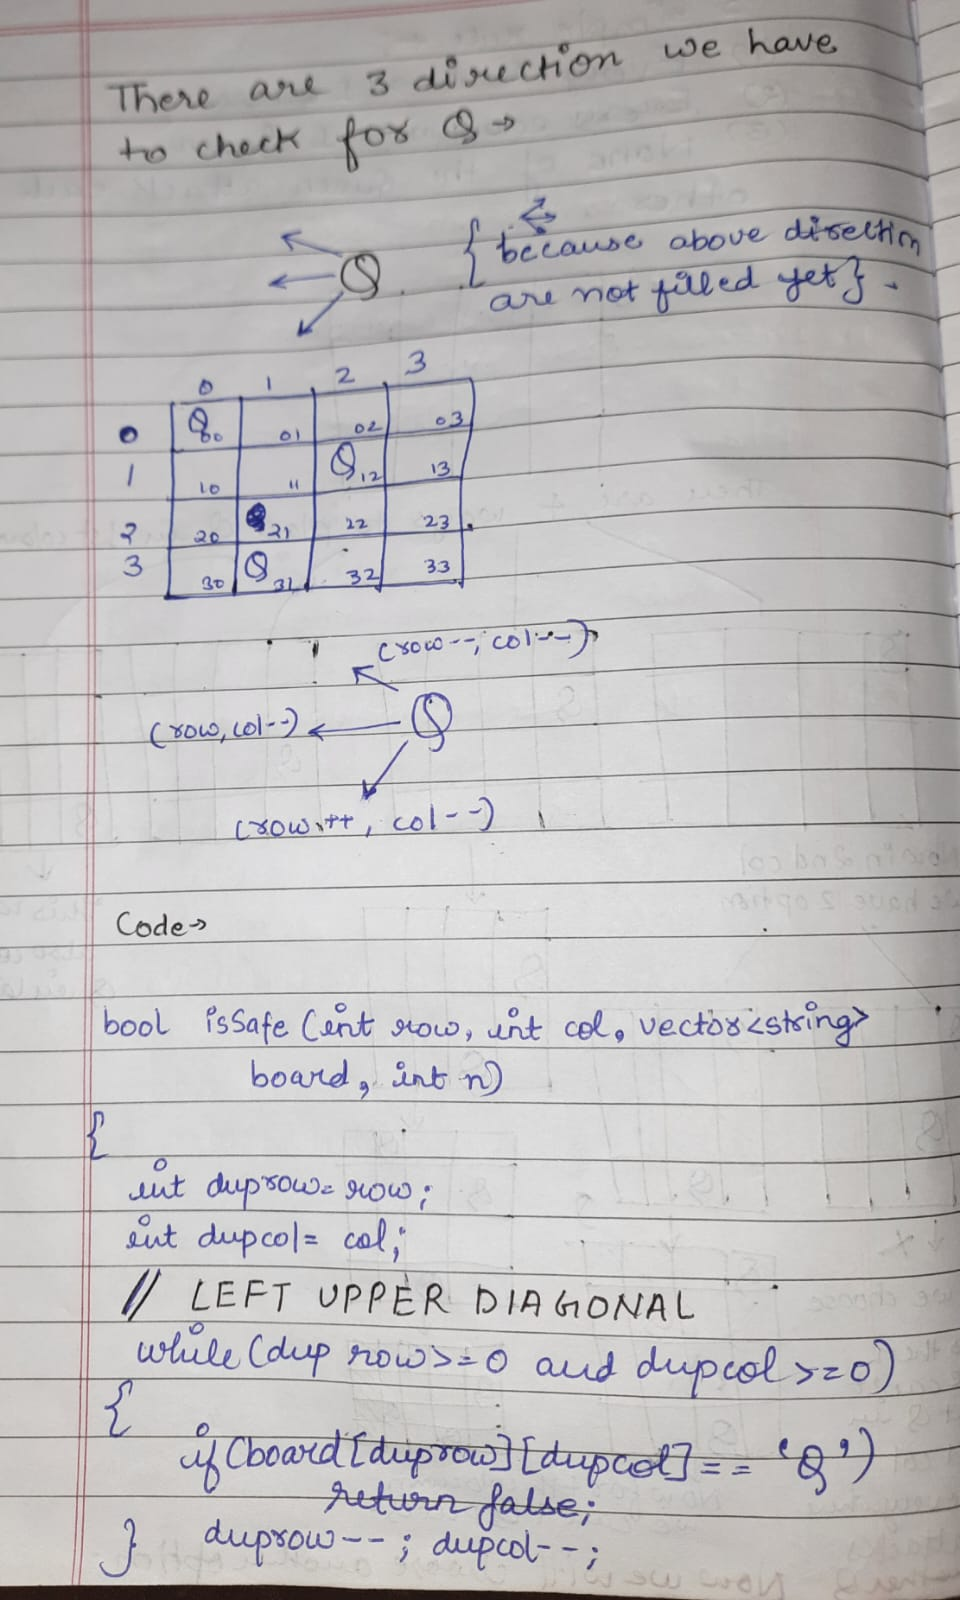 There are 3 direction we have
to check for Q →
Q
{ because above direction
are not filled yet}.
0 1 2 3
0 Q 00 01 02 03
1 10 11 Q 12 13
2 20 21 22 23
3 30 Q 31 32 33
(row--, col--)
(row, col--) ← Q
(row++, col--)
Code→
bool isSafe (int row, int col, vector<string>
board, int n)
{
int duprow= row;
int dupcol= col;
// LEFT UPPER DIAGONAL
while (dup row>=0 and dupcol >=0)
{
if (board[duprow][dupcol]== 'Q')
return false;
} duprow--; dupcol--;